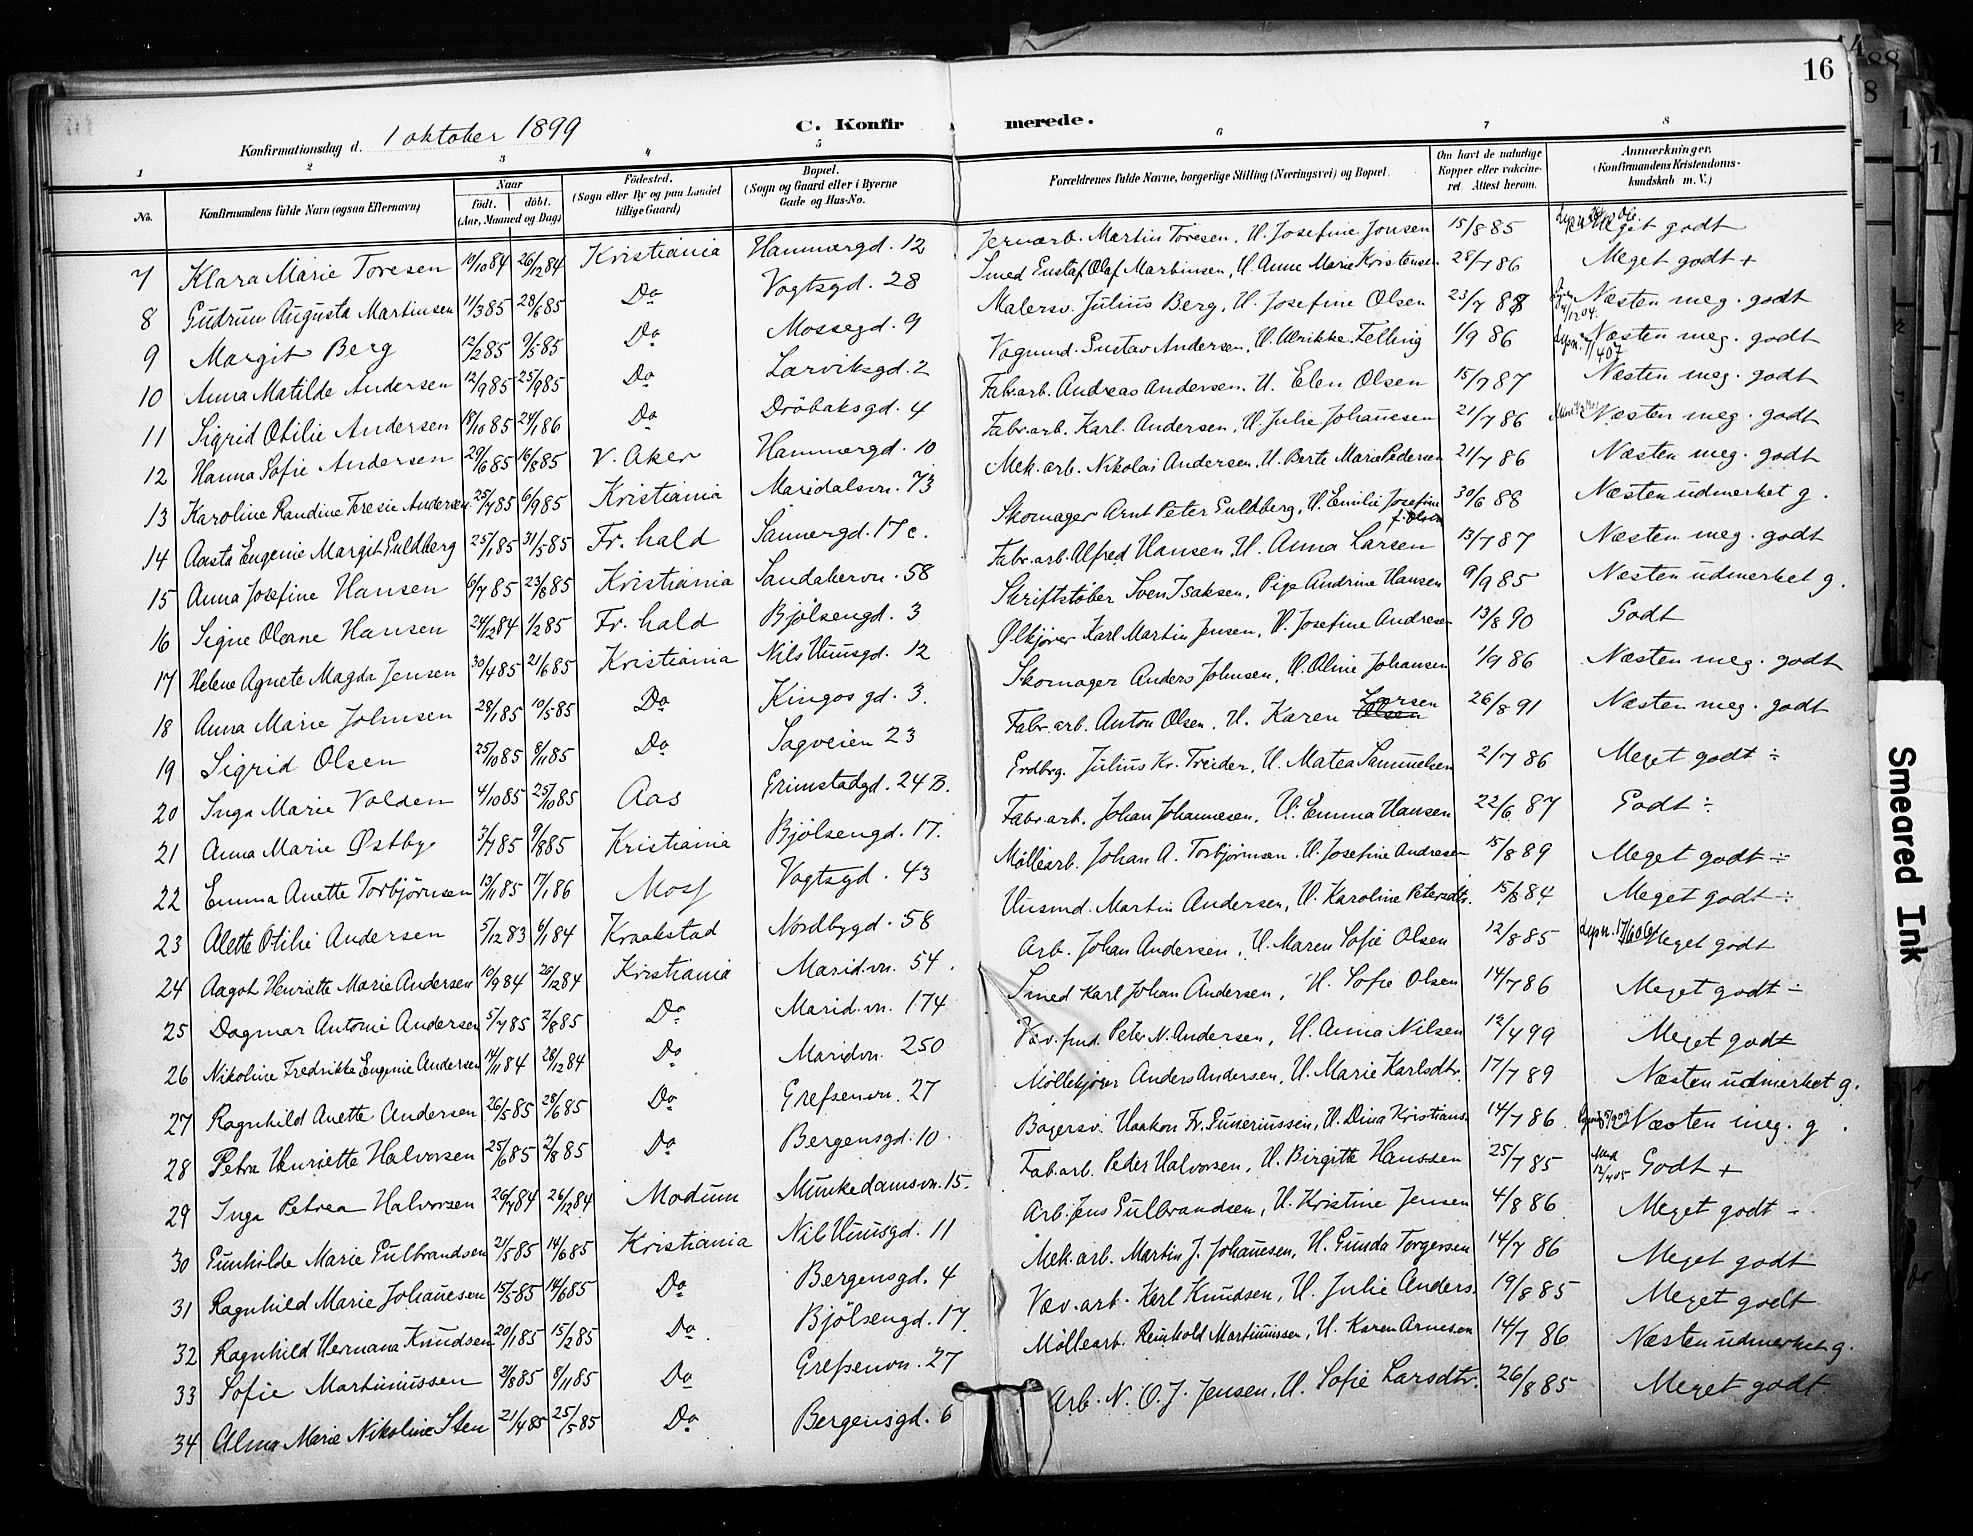 16
Konfirmationsdag d. 1 oktober 1899 C. Konfirmerede.
1 2 3 4 5 6 7 8
No. Konfirmandens fulde Navn (ogsaa Efternavn) Naar født. døbt. (Aar, Maaned og Dag) Fødested. (Sogn eller By og paa Landet tillige Gaard) Bopæl. (Sogn og Gaard eller i Byerne Gade og Hus-No. Forældrenes fulde Navne, borgerlige Stilling (Næringsvei) og Bopæl. Om havt de naturlige Kopper eller vaccineret. Attest herom. Anmærkninger. (Konfirmandens Kristendomskundskab m. V.)
7 Klara Marie Toresen 19/10 84 26/12 84 Kristiania Hammergd. 12 Jernarb. Martin Toresen, H. Josefine Jonsen 15/8 85 Meget godt
8 Gudrun Augusta Martinsen 11/3 85 28/6 85 Do Vogtsgd. 28 Smed Gustaf Olaf Martinsen, H. Anne Marie Kristensen 28/7 86 Meget godt +
9 Margit Berg 12/2 85 9/5 85 Do Mossegd. 9 Malersv. Julius Berg, H. Josefine Olsen 23/7 88 Næsten meg. godt
10 Anna Matilde Andersen 12/9 85 25/9 85 Do Larviksgd. 2 Vognmd. Gustav Andersen, H. Ulrikke Felling 1/9 86 Næsten meg. godt
11 Sigrid Otilie Andersen 18/10 85 24/1 86 Do Dröbaksgd. 4 Fabr.arb. Andreas Andersen, H. Elen Olsen 15/7 87 Næsten meg. godt
12 Hanna Sofie Andersen 29/6 85 16/8 85 V. Aker Hammergd. 10 Fabr.arb. Karl Andersen, H. Julie Johannesen 21/7 86 Næsten meg. godt
13 Karoline Randine Teresie Andersen 25/7 85 6/9 85 Kristiania Maridalsvn. 73 Mek. arb. Nikolai Andersen, H. Berte Marie Pedersen 21/7 86 Næsten meg. godt
14 Aasta Eugenie Margit Guldberg 25/1 85 31/5 85 Fr. hald Sannergd. 17 c. Skomager Arnt Peter Guldberg, H. Emilie Josefine f. Olsen 30/6 88 Næsten udmerket g.
15 Anna Josefine Hansen 6/7 85 23/8 85 Kristiania Sandakervn. 58 Fabr.arb. Alfred Hansen, H. Anna Larsen 13/7 87 Næsten meg. godt
16 Signe Oleane Hansen 24/12 84 1/2 85 Fr. hald Bjölsengd. 3 Skriftstøber Sven Isaksen, Pige Andrine Hansen 9/9 85 Næsten udmerket g.
17 Helene Agnete Magda Jensen 30/4 85 21/6 85 Kristiania Nils Huusgd. 12 Ølkjører Karl Martin Jensen, H. Josefine Andresen 13/8 90 Godt
18 Anna Marie Johnsen 29/1 85 10/5 85 Do Kingos gd. 3. Skomager Anders Johnsen, H. Oline Johansen 1/9 86 Næsten meg. godt
19 Sigrid Olsen 25/10 85 8/11 85 Do Sagveien 23 Fabr. arb. Anton Olsen, H. Karen Olsen Larsen 26/8 91 Næsten meg. godt
20 Inga Marie Volden 4/10 85 25/10 85 Aas Grimstadgd. 24 B. Erdbrg. Julius Kr. Treider, H. Matea Samuelsen 2/7 86 Meget godt ÷
21 Anna Marie Østby 3/7 85 9/8 85 Kristiania Bjölsengd. 17. Fabr.arb. Johan Johannesen, H. Emma Hansen 22/6 87 Godt ÷
22 Emma Anette Torbjörnsen 13/11 85 17/1 86 Moss Vogtsgd. 43 Møllearb. Johan A. Torbjörnsen, H. Josefine Andresen 15/8 89 Meget godt ÷
23 Alette Otilie Andersen 5/12 83 6/1 84 Kraakstad Nordbygd. 58 Husmd. Martin Andersen, H. Karoline Petersdtr. 15/8 84 Meget godt ÷
24 Aagot Henriette Marie Andersen 10/9 84 26/12 84 Kristiania Marid.vn. 54. Arb. Johan Andersen, H. Maren Sofie Olsen 12/8 85 Meget godt
25 Dagmar Antonie Andersen 5/7 85 2/8 85 Do Marid.vn. 174 Smed Karl Johan Andersen, H. Sofie Olsen 14/7 86 Meget godt ÷
26 Nikoline Fredrikke Eugenie Andersen 14/11 84 28/12 84 Do Maridvn. 250 Væv. fmd. Peter N. Andersen, H. Anna Nilsen 12/4 99 Meget godt
27 Ragnhild Anette Andersen 26/5 85 28/6 85 Do Grefsenvn. 27 Møllekjører Anders Andersen, H. Marie Karlsdtr. 17/7 89 Næsten udmerket g.
28 Petra Henriette Halvorsen 25/6 85 2/8 85 Do Bergensgd. 10. Bagersv. Haakon Fr. Guneriussen, H. Dina Kristians. 14/7 86 Næsten meg. g.
29 Inga Petrea Halvorsen 26/7 84 26/12 84 Modum Munkedamsvn. 15. Fab.arb. Peder Halvorsen, H. Birgitte Hanssen 25/7 85 Godt +
30 Gunhilde Marie Gulbrandsen 21/5 85 14/6 85 Kristiania Nils Huusgd. 11 Arb. Jens Gulbrandsen, H. Kristine Jensen 4/8 86 Meget godt ÷
31 Ragnhild Marie Johannesen 15/5 85 14/6 85 Do Bergensgd. 4 Mek. arb. Martin J. Johannesen, H. Gunda Torgersen 14/7 86 Meget godt
32 Ragnhild Hermana Knudsen 20/1 85 15/2 85 Do Bjölsengd. 17. Væv. arb. Karl Knudsen, H. Julie Anders. 19/8 85 Meget godt
33 Sofie Martiniussen 2/8 85 8/11 85 Do Grefsenvn. 27 Møllearb. Reinhold Martiniussen, H. Karen Arnesen 14/7 86 Næsten udmerket g.
34 Alma Marie Nikoline Sten 21/4 85 25/5 85 Do Bergensgd. 6 Arb. N. O. J. Jensen, H. Sofie Larsdtr. 26/8 85 Meget godt
Smeared Ink